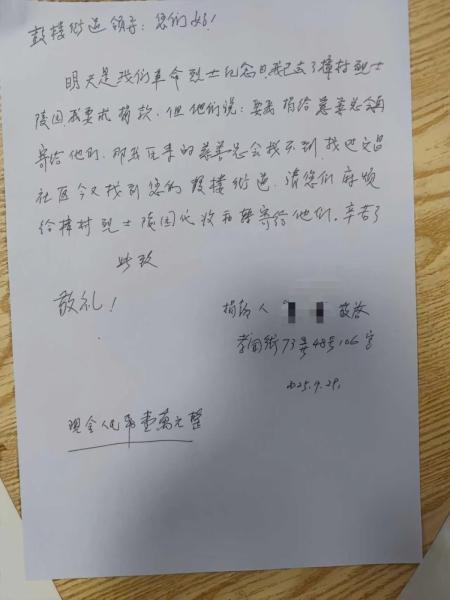 鼓楼街道领导：您们好！
明天是我们革命烈士纪念日，我已去了樟村烈士
陵园我要求捐款，但他们说：要 捐给慈善总会
寄给他们，那我区 的慈善总会找不到，找 文昌
社区今又找到您的鼓楼街道，请您们麻烦
给樟村烈士陵园代收 寄给他们。辛苦了
此致
敬礼！
捐款人 敬启
孝闻街73弄48号106室
2025.9.29.
现金人民币壹萬元整